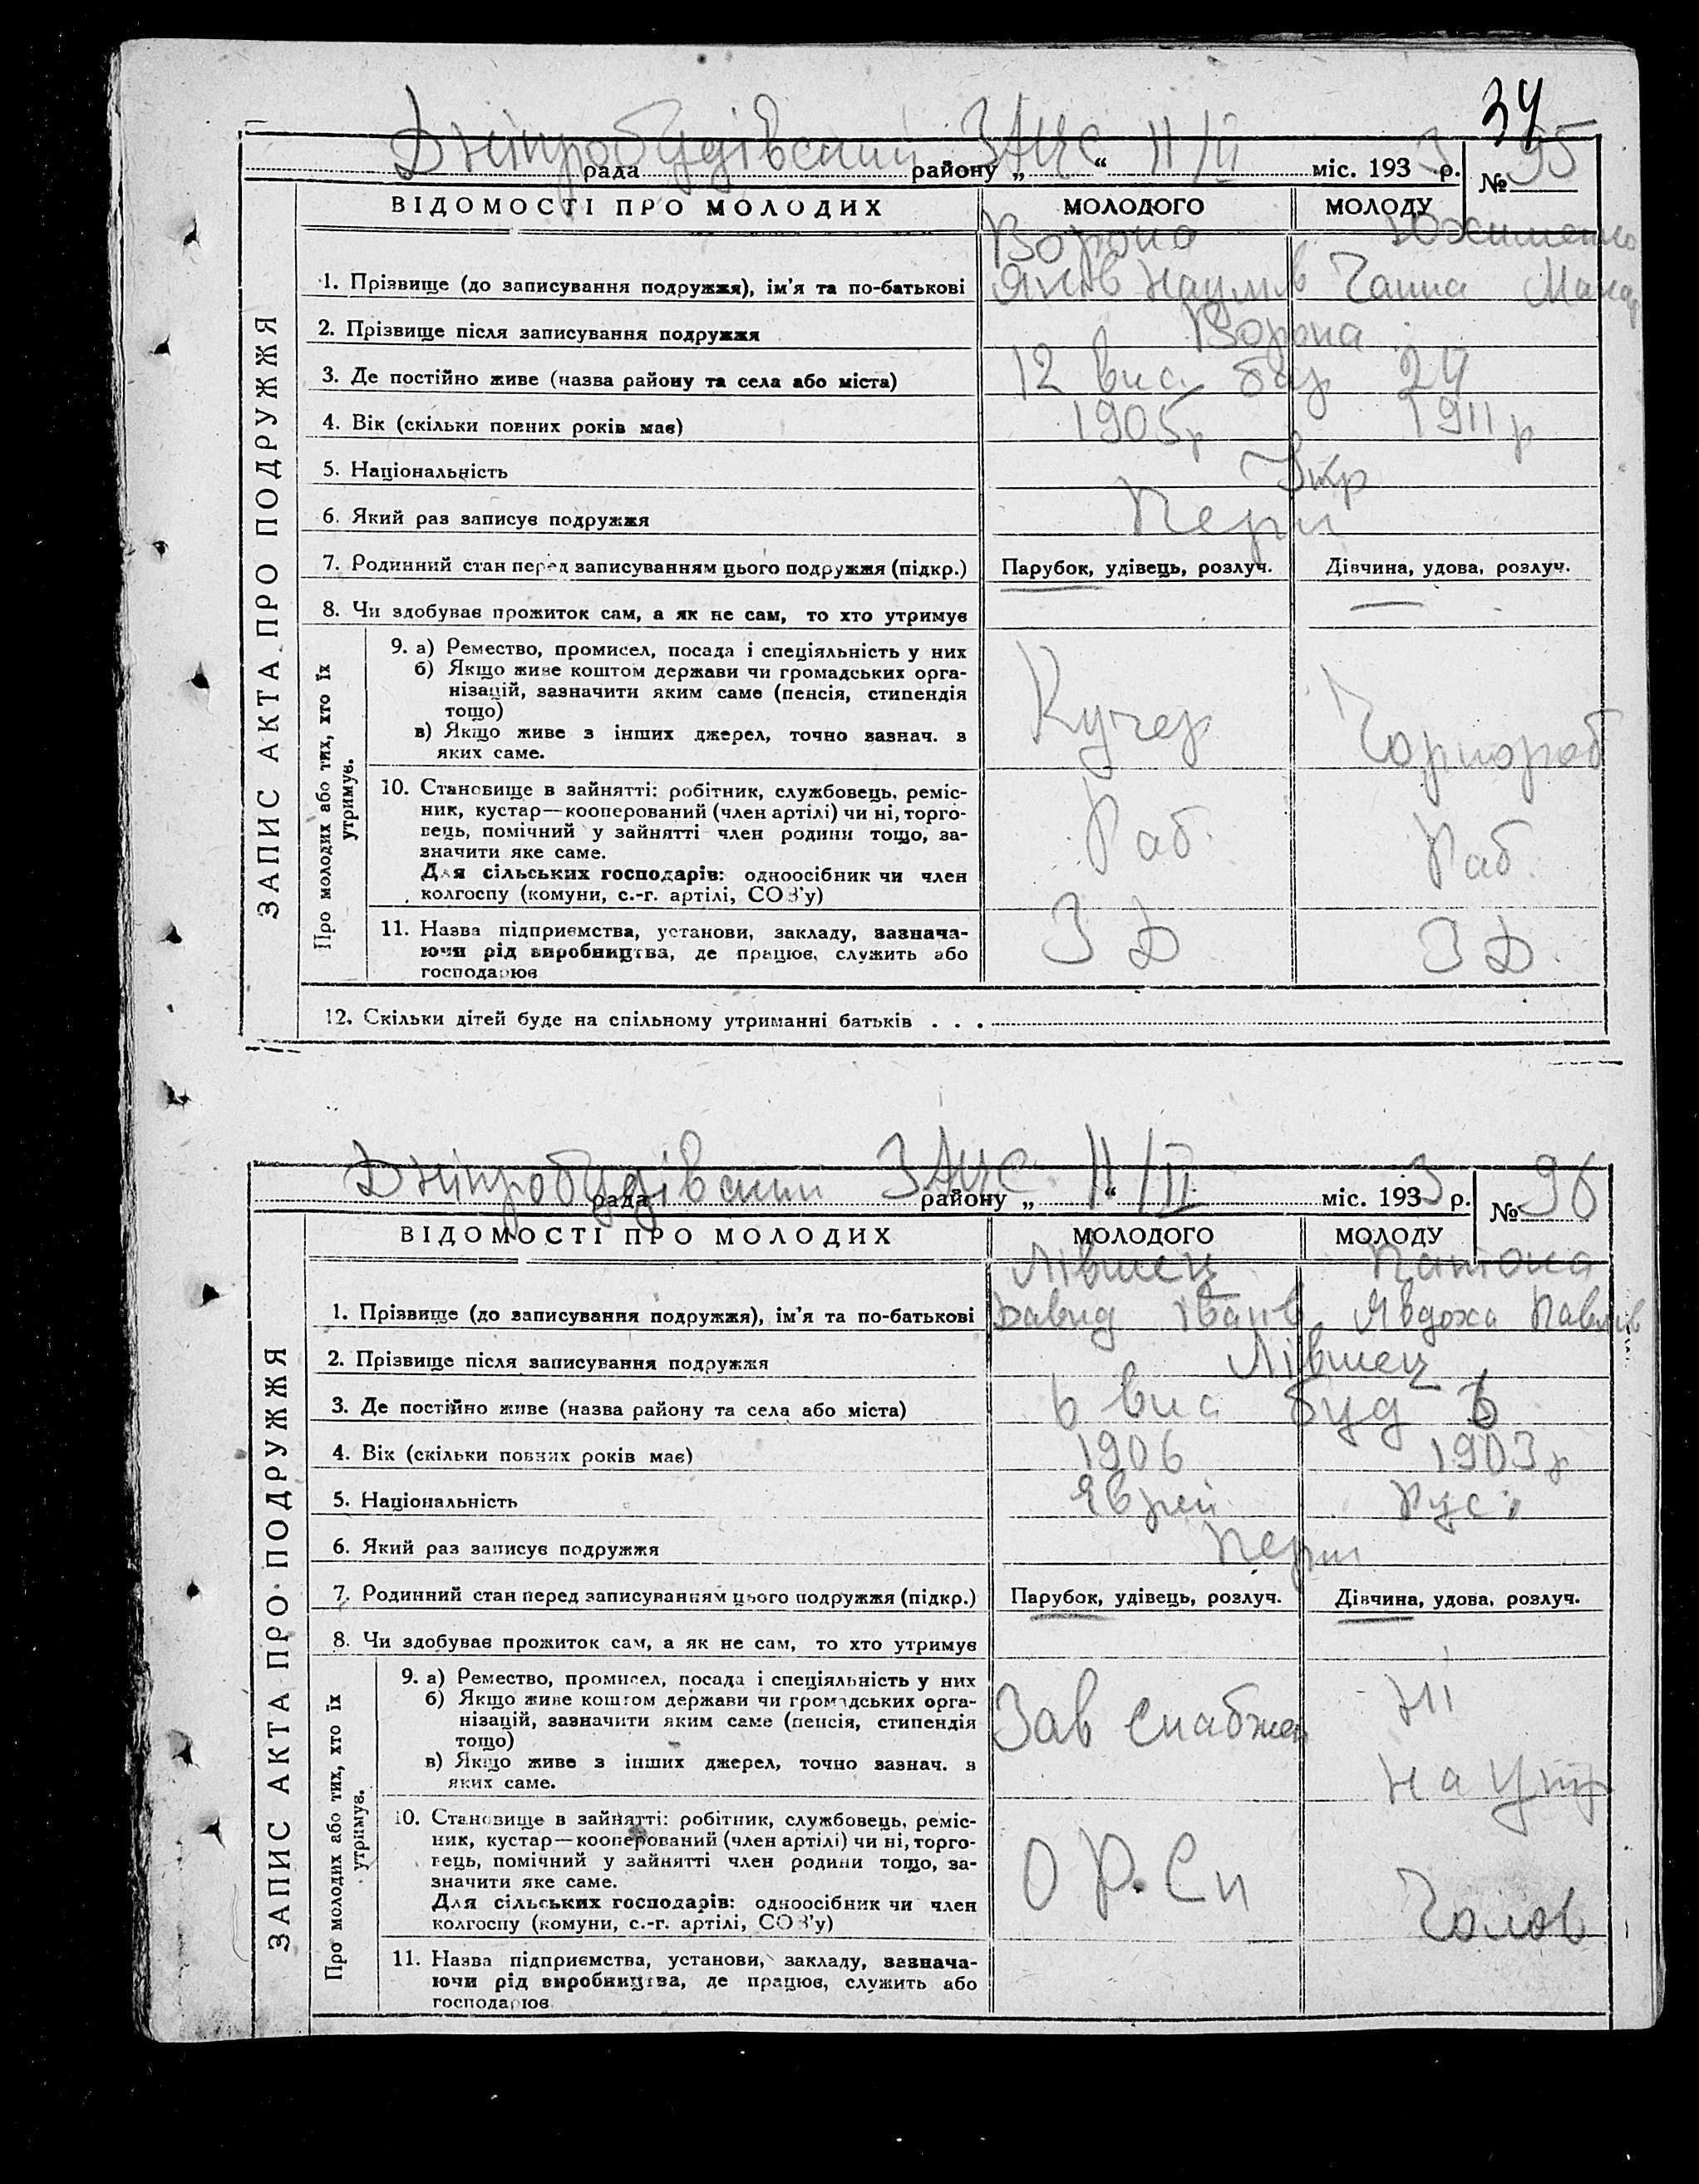 34
Дніпробудівський ЗАЦС 11/II
рада району „ “ міс. 1933 р. № 95
ВІДОМОСТІ ПРО МОЛОДИХ МОЛОДОГО МОЛОДУ
Ворона Юхименко
1. Прізвище (до записування подружжя), ім'я та по-батькові Яків Наумів Ганна Макар
2. Прізвище після записування подружжя Ворона
3. Де постійно живе (назва району та села або міста) 12 вис. буд 24
4. Вік (скільки повних років має) 1905р 1911р
5. Національність Укр
6. Який раз записує подружжя Перш
7. Родинний стан перед записуванням цього подружжя (підкр.) Парубок, удівець, розлуч. Дівчина, удова, розлуч.
8. Чи здобуває прожиток сам, а як не сам, то хто утримує
ЗАПИС АКТА ПРО ПОДРУЖЖЯ
Про молодих або тих, хто їх утримує.
9. а) Ремество, промисел, посада і спеціяльність у них
б) Якщо живе коштом держави чи громадських орга-
нізацій, зазначити яким саме (пенсія, стипендія
тощо)
в) Якщо живе з інших джерел, точно зазнач. з
яких саме.
Кучер Чорнороб
10. Становище в зайнятті: робітник, службовець, реміс-
ник, кустар—кооперований (член артілі) чи ні, торго-
вець, помічний у зайнятті член родини тощо, за-
значити яке саме.
Для сільських господарів: одноосібник чи член
колгоспу (комуни, с.-г. артілі, СОЗ'у)
Раб. Раб.
11. Назва підприємства, установи, закладу, зазнача-
ючи рід виробництва, де працює, служить або
господарює
З Д З Д.
12. Скільки дітей буде на спільному утриманні батьків . . .
Дніпробудівський ЗАЦС 11/II
рада району „ “ міс. 1933 р. № 96
ВІДОМОСТІ ПРО МОЛОДИХ МОЛОДОГО МОЛОДУ
Лівшец
1. Прізвище (до записування подружжя), ім'я та по-батькові Давид Іванів Явдоха Павлів
2. Прізвище після записування подружжя Лівшец
3. Де постійно живе (назва району та села або міста) 6 вис буд 6
4. Вік (скільки повних років має) 1906 1903р
5. Національність Єврей Рус.
6. Який раз записує подружжя Перш
7. Родинний стан перед записуванням цього подружжя (підкр.) Парубок, удівець, розлуч. Дівчина, удова, розлуч.
8. Чи здобуває прожиток сам, а як не сам, то хто утримує
ЗАПИС АКТА ПРО ПОДРУЖЖЯ
Про молодих або тих, хто їх утримує.
9. а) Ремество, промисел, посада і спеціяльність у них
б) Якщо живе коштом держави чи громадських орга-
нізацій, зазначити яким саме (пенсія, стипендія
тощо)
в) Якщо живе з інших джерел, точно зазнач. з
яких саме.
Зав снабжен Ні
на утр
10. Становище в зайнятті: робітник, службовець, реміс-
ник, кустар—кооперований (член артілі) чи ні, торго-
вець, помічний у зайнятті член родини тощо, за-
значити яке саме.
Для сільських господарів: одноосібник чи член
колгоспу (комуни, с.-г. артілі, СОЗ'у)
Чолов
11. Назва підприємства, установи, закладу, зазнача-
ючи рід виробництва, де працює, служить або
господарює